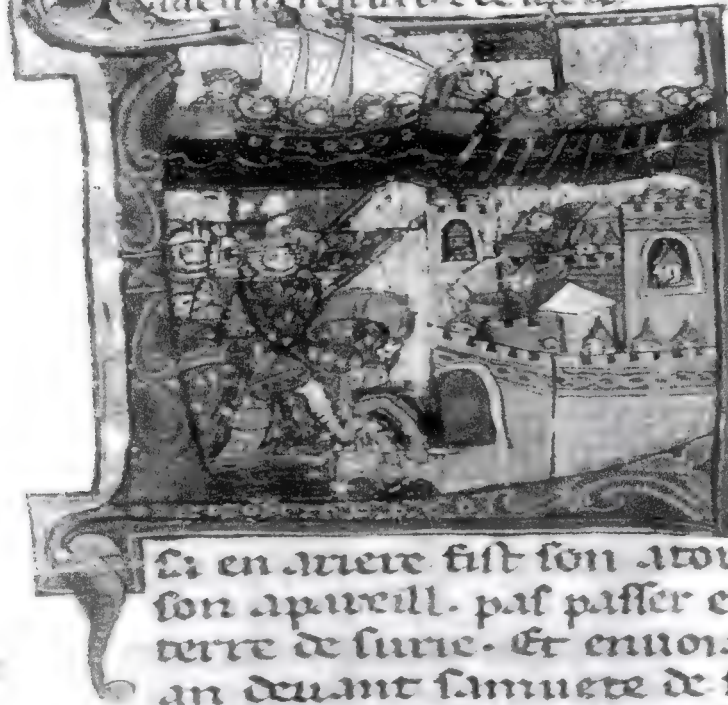 Li en ariere fist son atou
son apareill. pas passer e
terre de surie. Et enuoi
an deuant samuete de